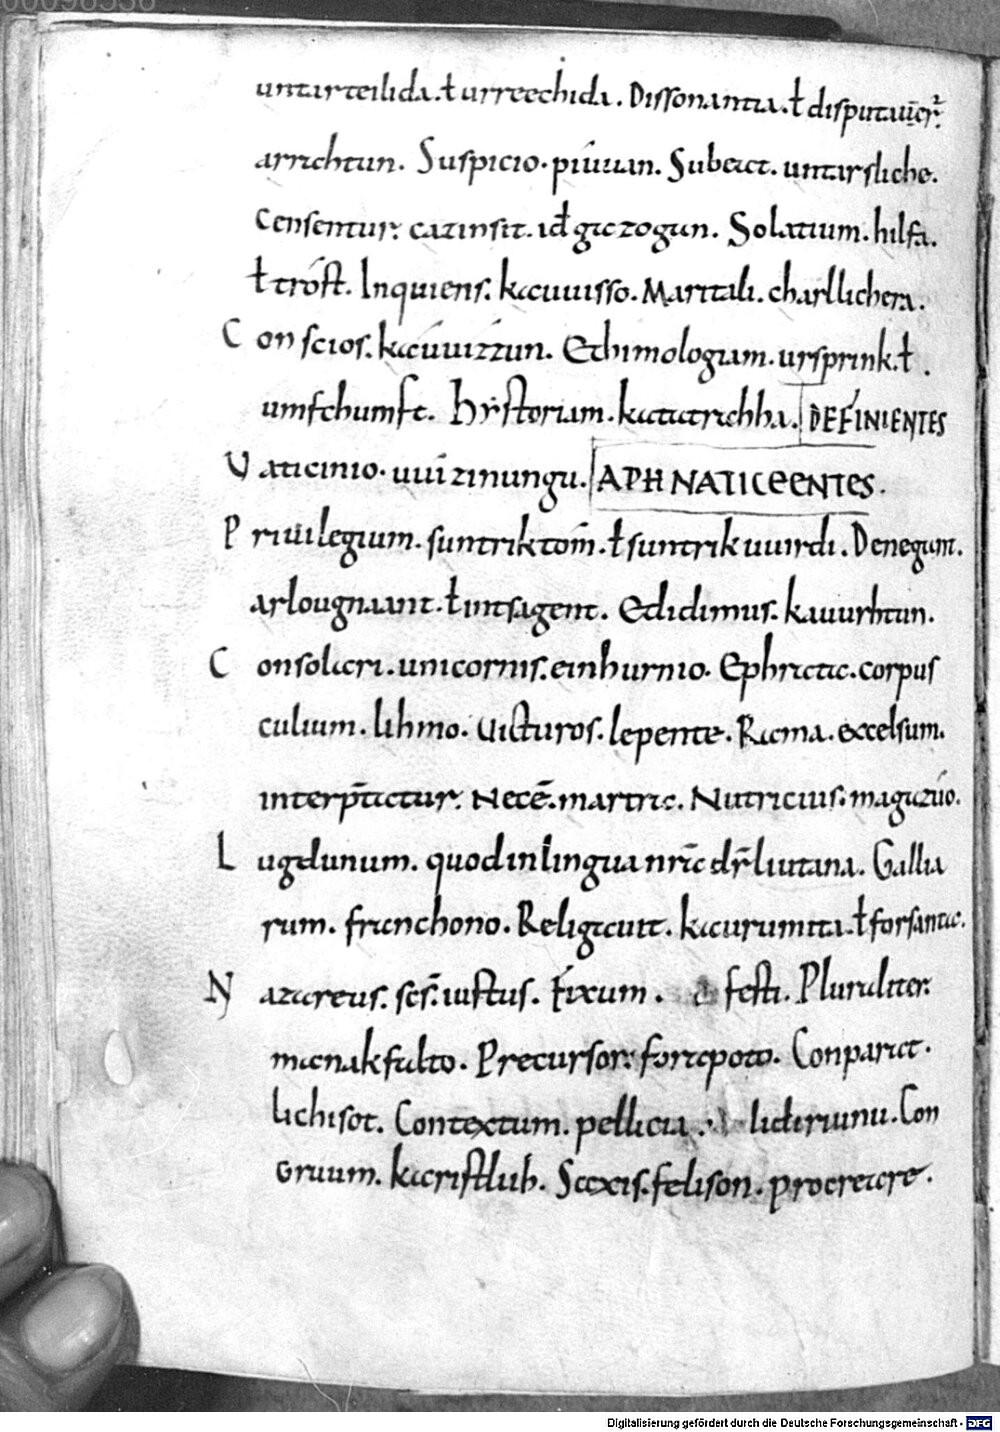 00096338
untarteilida. ł urreechida. Dissonantia. ł disputauer̄
arrichtun. Suspicio. piúuan. Subeact. untarsliche.
censentur. cazinsit. iđ gaezogan. Solatium. hilfa.
ł tróst. Inquiens. kacuuisso. Maritali. charllichera.
Conscios. kacúuizzun. Ethimologiam. ursprink. ł.
umfchumft. Hystoriam. katatrichha. DEFINIENTES
Vaticinio. uuizinungu. APHNATICEENTES.
Priuilegium. suntriktom. ł suntrikuuirdi. Denegant.
arlougnaant. ł intsagent. Edidimus. kauurhtun.
Consolacri. unicornis. einhurnio. Ephriatic. corpus
culium. lihmo. Uicturos. lepente. Racma. excelsum.
interp̄tatur. Necē. martrae. Nutricius. magazúo.
Lugdunum. quod in lingua nr̄ae dr̄ liutana. Gallia
rum. francchono. Religacuit. kacurumita. ł forsantae.
Nazareus. sc̄s. iustus. Fixum. festi. Pluraliter.
macnakfalto. Precursor. foraepoto. Conparact.
lichisot. Contextum. pellicia. liderianu. Con
Gruum. kacristlub. Saexis. felison. procreacre.
Digitalisierung gefördert durch die Deutsche Forschungsgemeinschaft - DFG